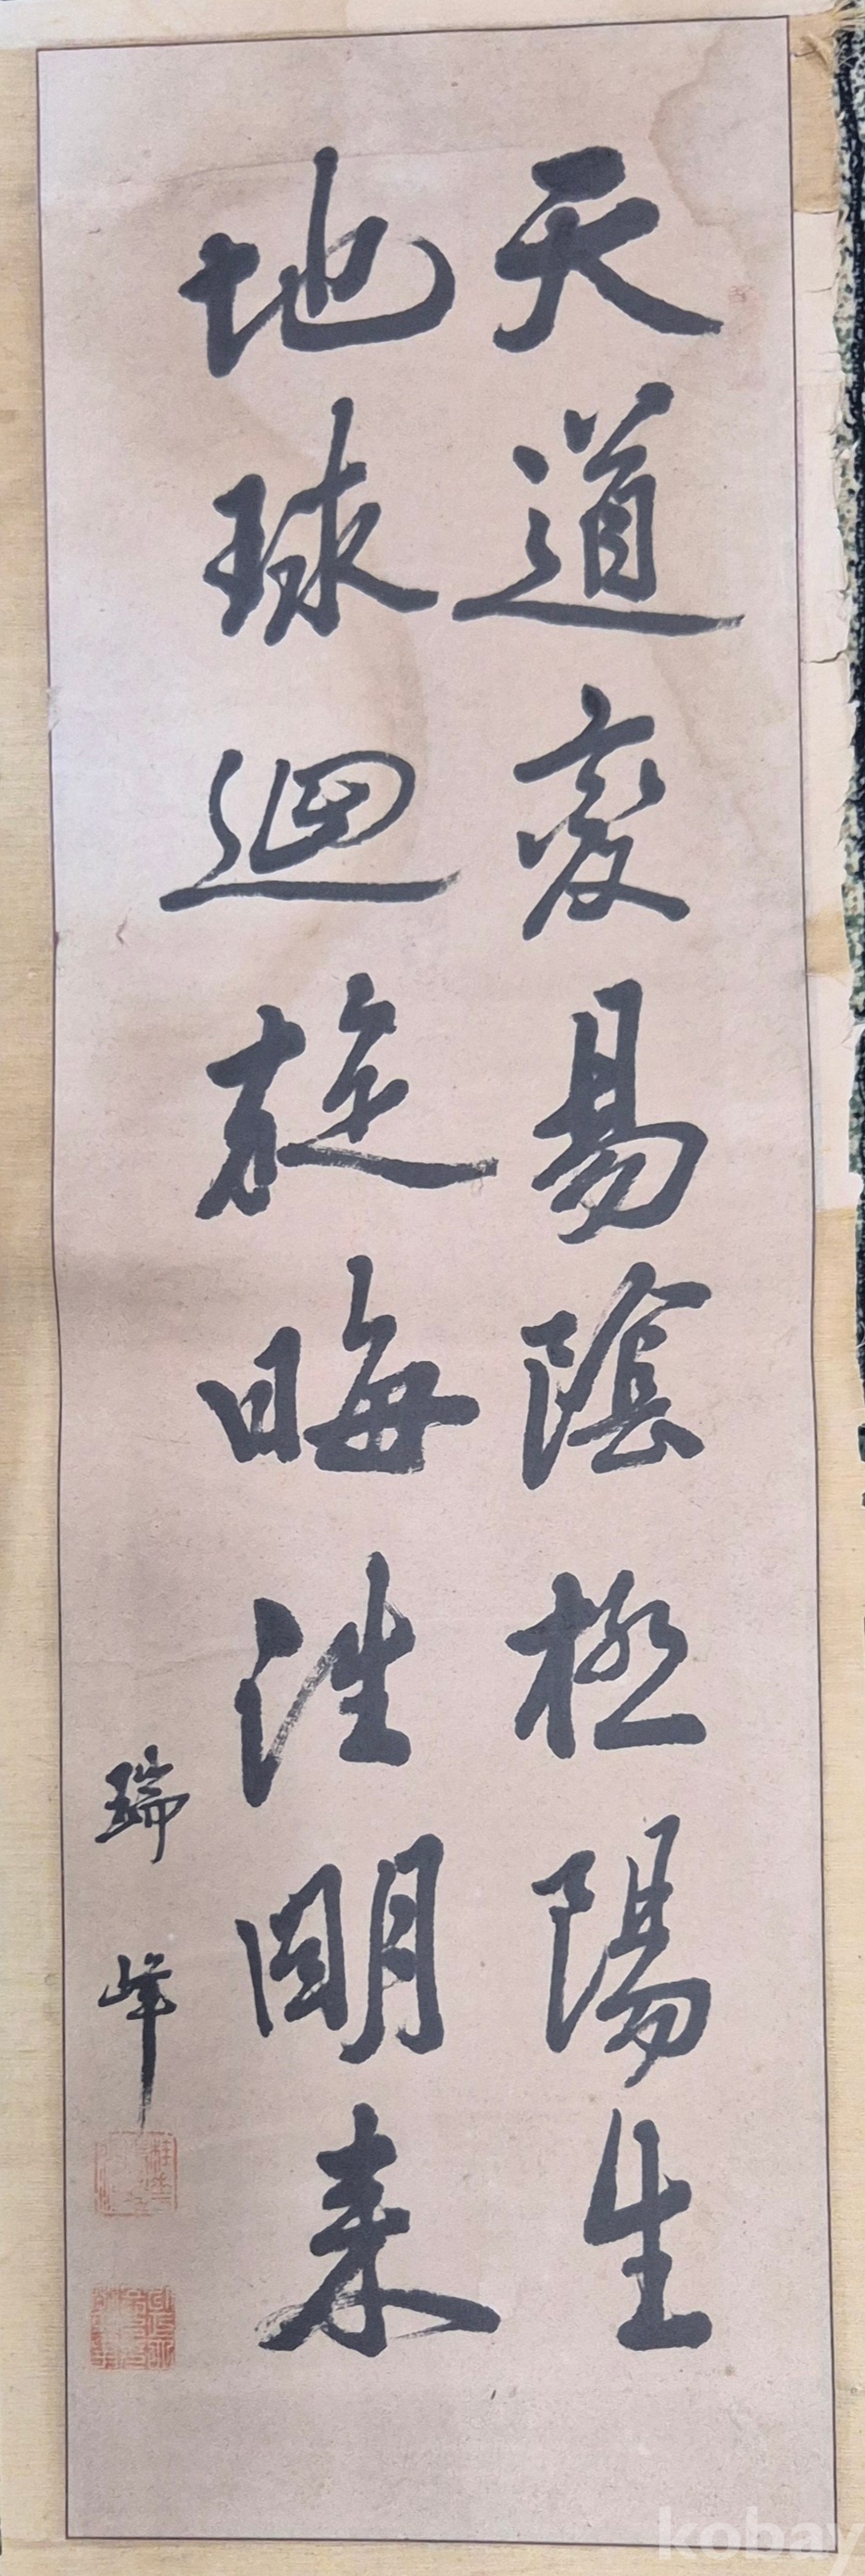 天道変易陰極陽生
地球廻旋晦往明来
瑞峰
kobay